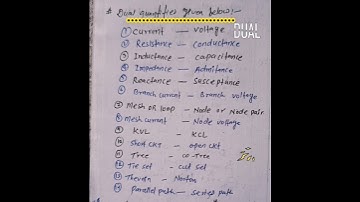 * Dual quantities given below:-
DUAL
① Current — Voltage
② Resistance — Conductance
③ Inductance — capacitance
④ Impedance — Admittance
⑤ Reactance — Susceptance
⑥ Branch current — Branch voltage
⑦ Mesh or loop — Node or Node pair
⑧ Mesh current — Node voltage
⑨ KVL — KCL
⑩ Short CKT — open CKT
⑪ Tree — co-Tree
⑫ Tie set — cut set
⑬ Thevenin — Norton
⑭ Parallel path — series path